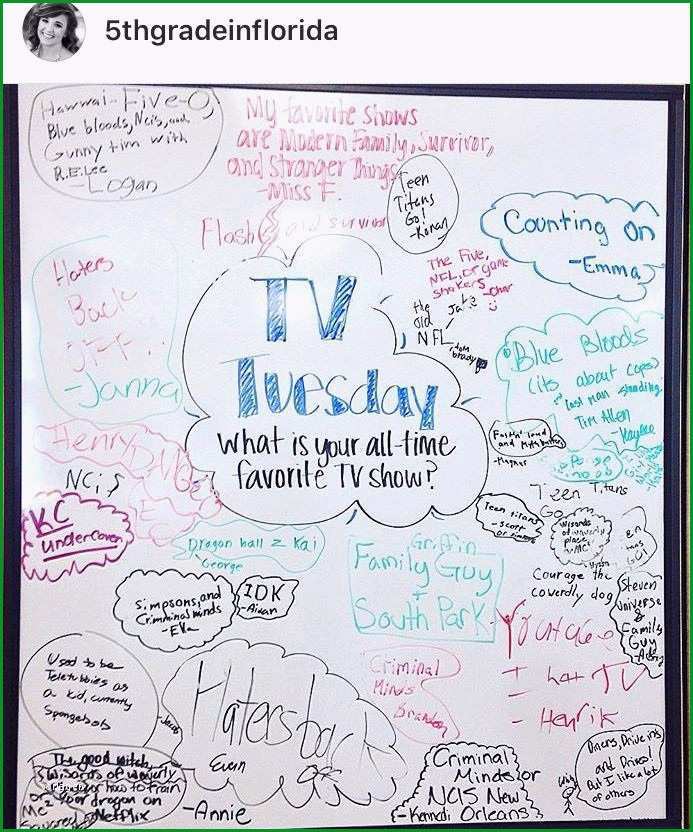 5thgradeinflorida
Hawwai-Five-O,
Blue bloods, Ncis, and
Gunny tim with
R.E. Lee
-Logan
My favorite shows
are Modern Family, Survivor,
and Stranger Things
-Miss F.
Teen
Titans
Go!
-Ronan
Flash and survivor
Counting On
-Emma
The Five,
NFL, or game
shakers
the
old
NFL
Jake
tom
brady
Haters
Back
OFF
-Janna
TV
Tuesday
What is your all-time
favorite TV show?
Blue Bloods
(its about cops)
last man standing
Tim Allen
-Kaylee
Henry D
NCiS
KC
undercover
Dragon ball z Kai
George
Griffin
Family Guy
+
South Park
Teen Titans
Go
Teen titans
-Scott
Wizards
of waverly
place
Courage the
coverdly dog
Steven
Universe
&
Family
Guy
Simpsons, and
Crimminal minds
-Ella
IDK
-Aidan
I hat TV
- Henrik
Criminal
Minds
Brandon
Used to be
Teletubbies as
a kid, currently
Spongebob
-Jacob
Haters back
off
Evern
-Annie
The good witch,
Wizards of waverly
or how to train
your dragon on
Netflix
Me 2
Criminal
Minds or
NCIS New
Orleans
-Kennadi
Diners, Drive ins
and Drives!
But I like a lot
of others